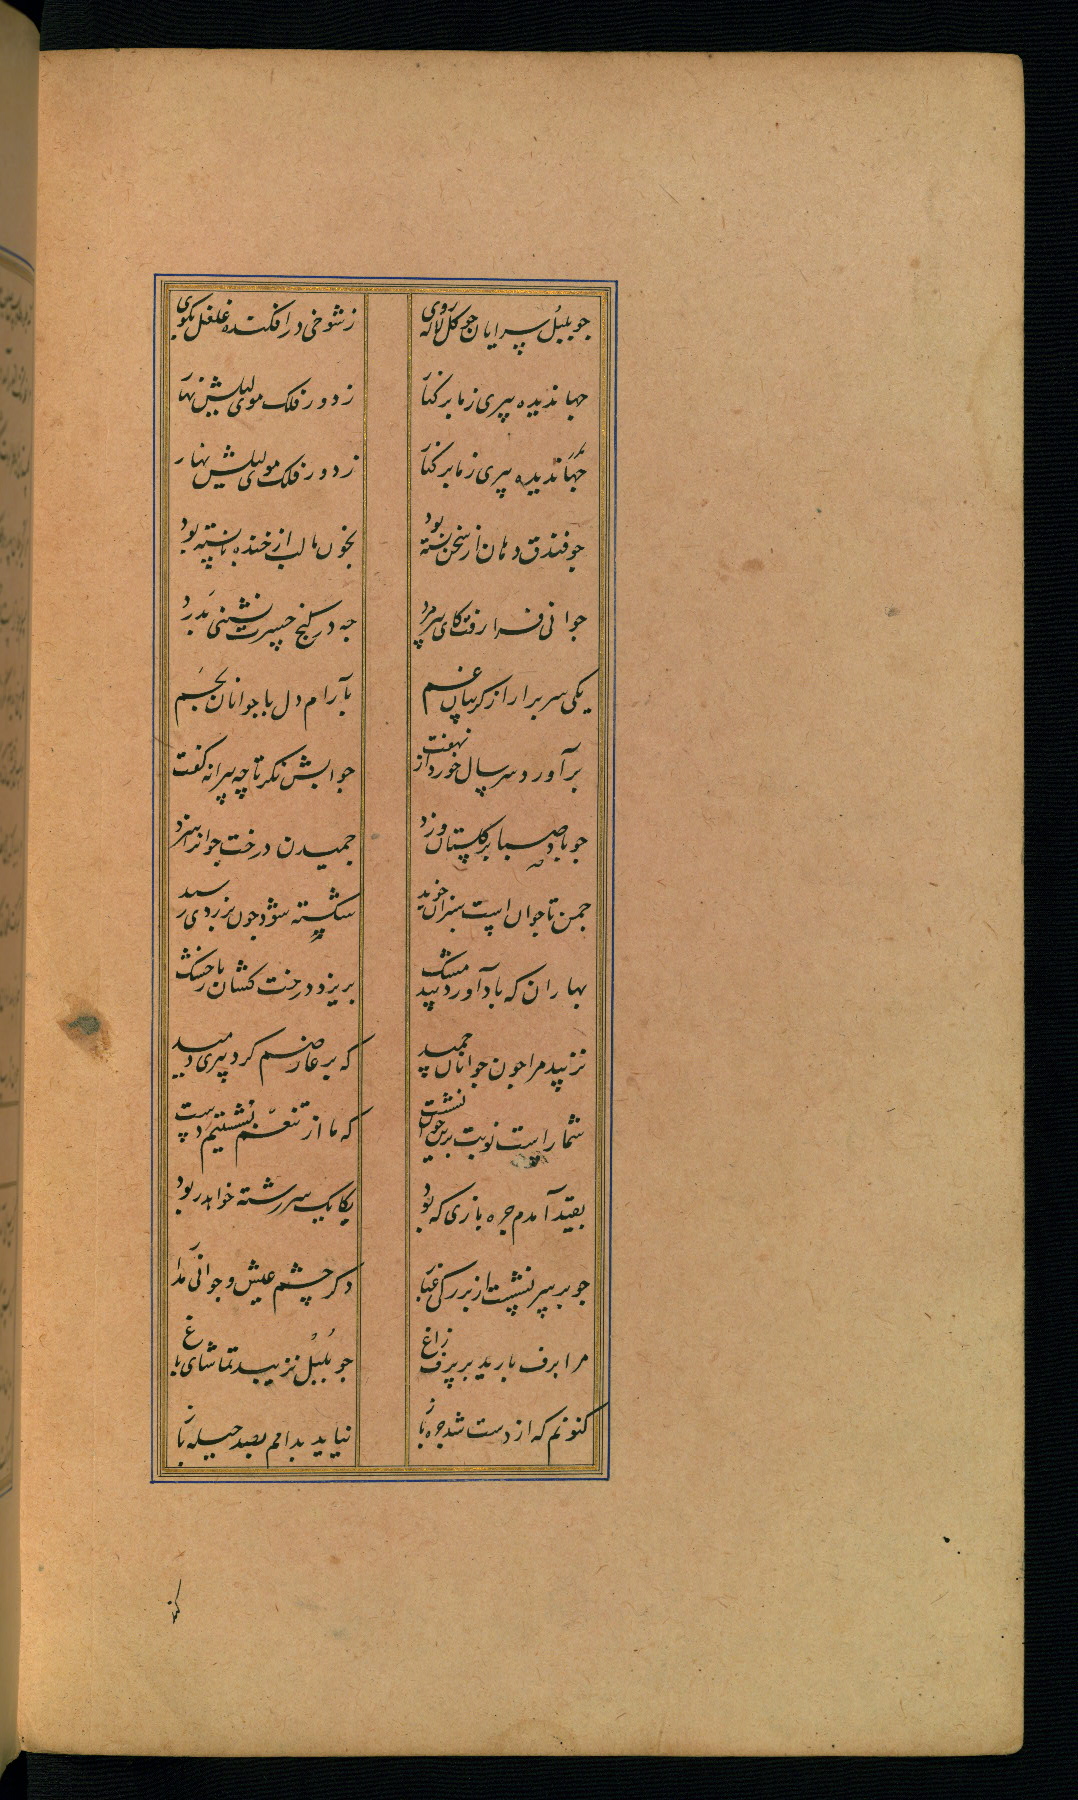 جو بلبُل سرایان جو کل لاله روی ز شوخی در افکنده غلغل بکوی
جهاندیده پیری ز ما بر کنار ز دور فلک موی لیلیش نهار
جهاندیده پیری ز ما بر کنار ز دور فلک موی لیلیش نهار
جو فندق دهان از سخن بسته بود نجون ما لب از خنده با پسته بود
جوانی فرا رفت کای پیرمرد جه در کنج حسرت نشینی بدرد
یکی سر برار از کریبان غم بآرام دل با جوانان بجم
برآورد سر سال خورد از نهفت جوابش نکر تا چه پیرانه کفت
جو باد صبا بر کلستان وزد جمیدن درخت جوانرا سزد
جمن تا جوان است سبزان خوید شکسته شود جون بزردی رسید
بهاران که باد آورد بید مشک بریزد درخت کشان بار خشک
نزیبد مرا جون جوانان جمید که بر عارضم کرد پیری دمید
شما راست نوبت برین خوان نشست که ما از تنعّم بشستیم دست
بقید آمدم جره بازی که بود یکایک سر رشته خواهد ربود
جو بر سر نشست از بزرکی غبار دکر چشم عیش و جوانی مدار
مرا برف بارید بر پر زاغ جو بُلبُل نزیبد تماشای باغ
کنونم که از دست شد جره باز نیاید بدامم بصد حیله باز